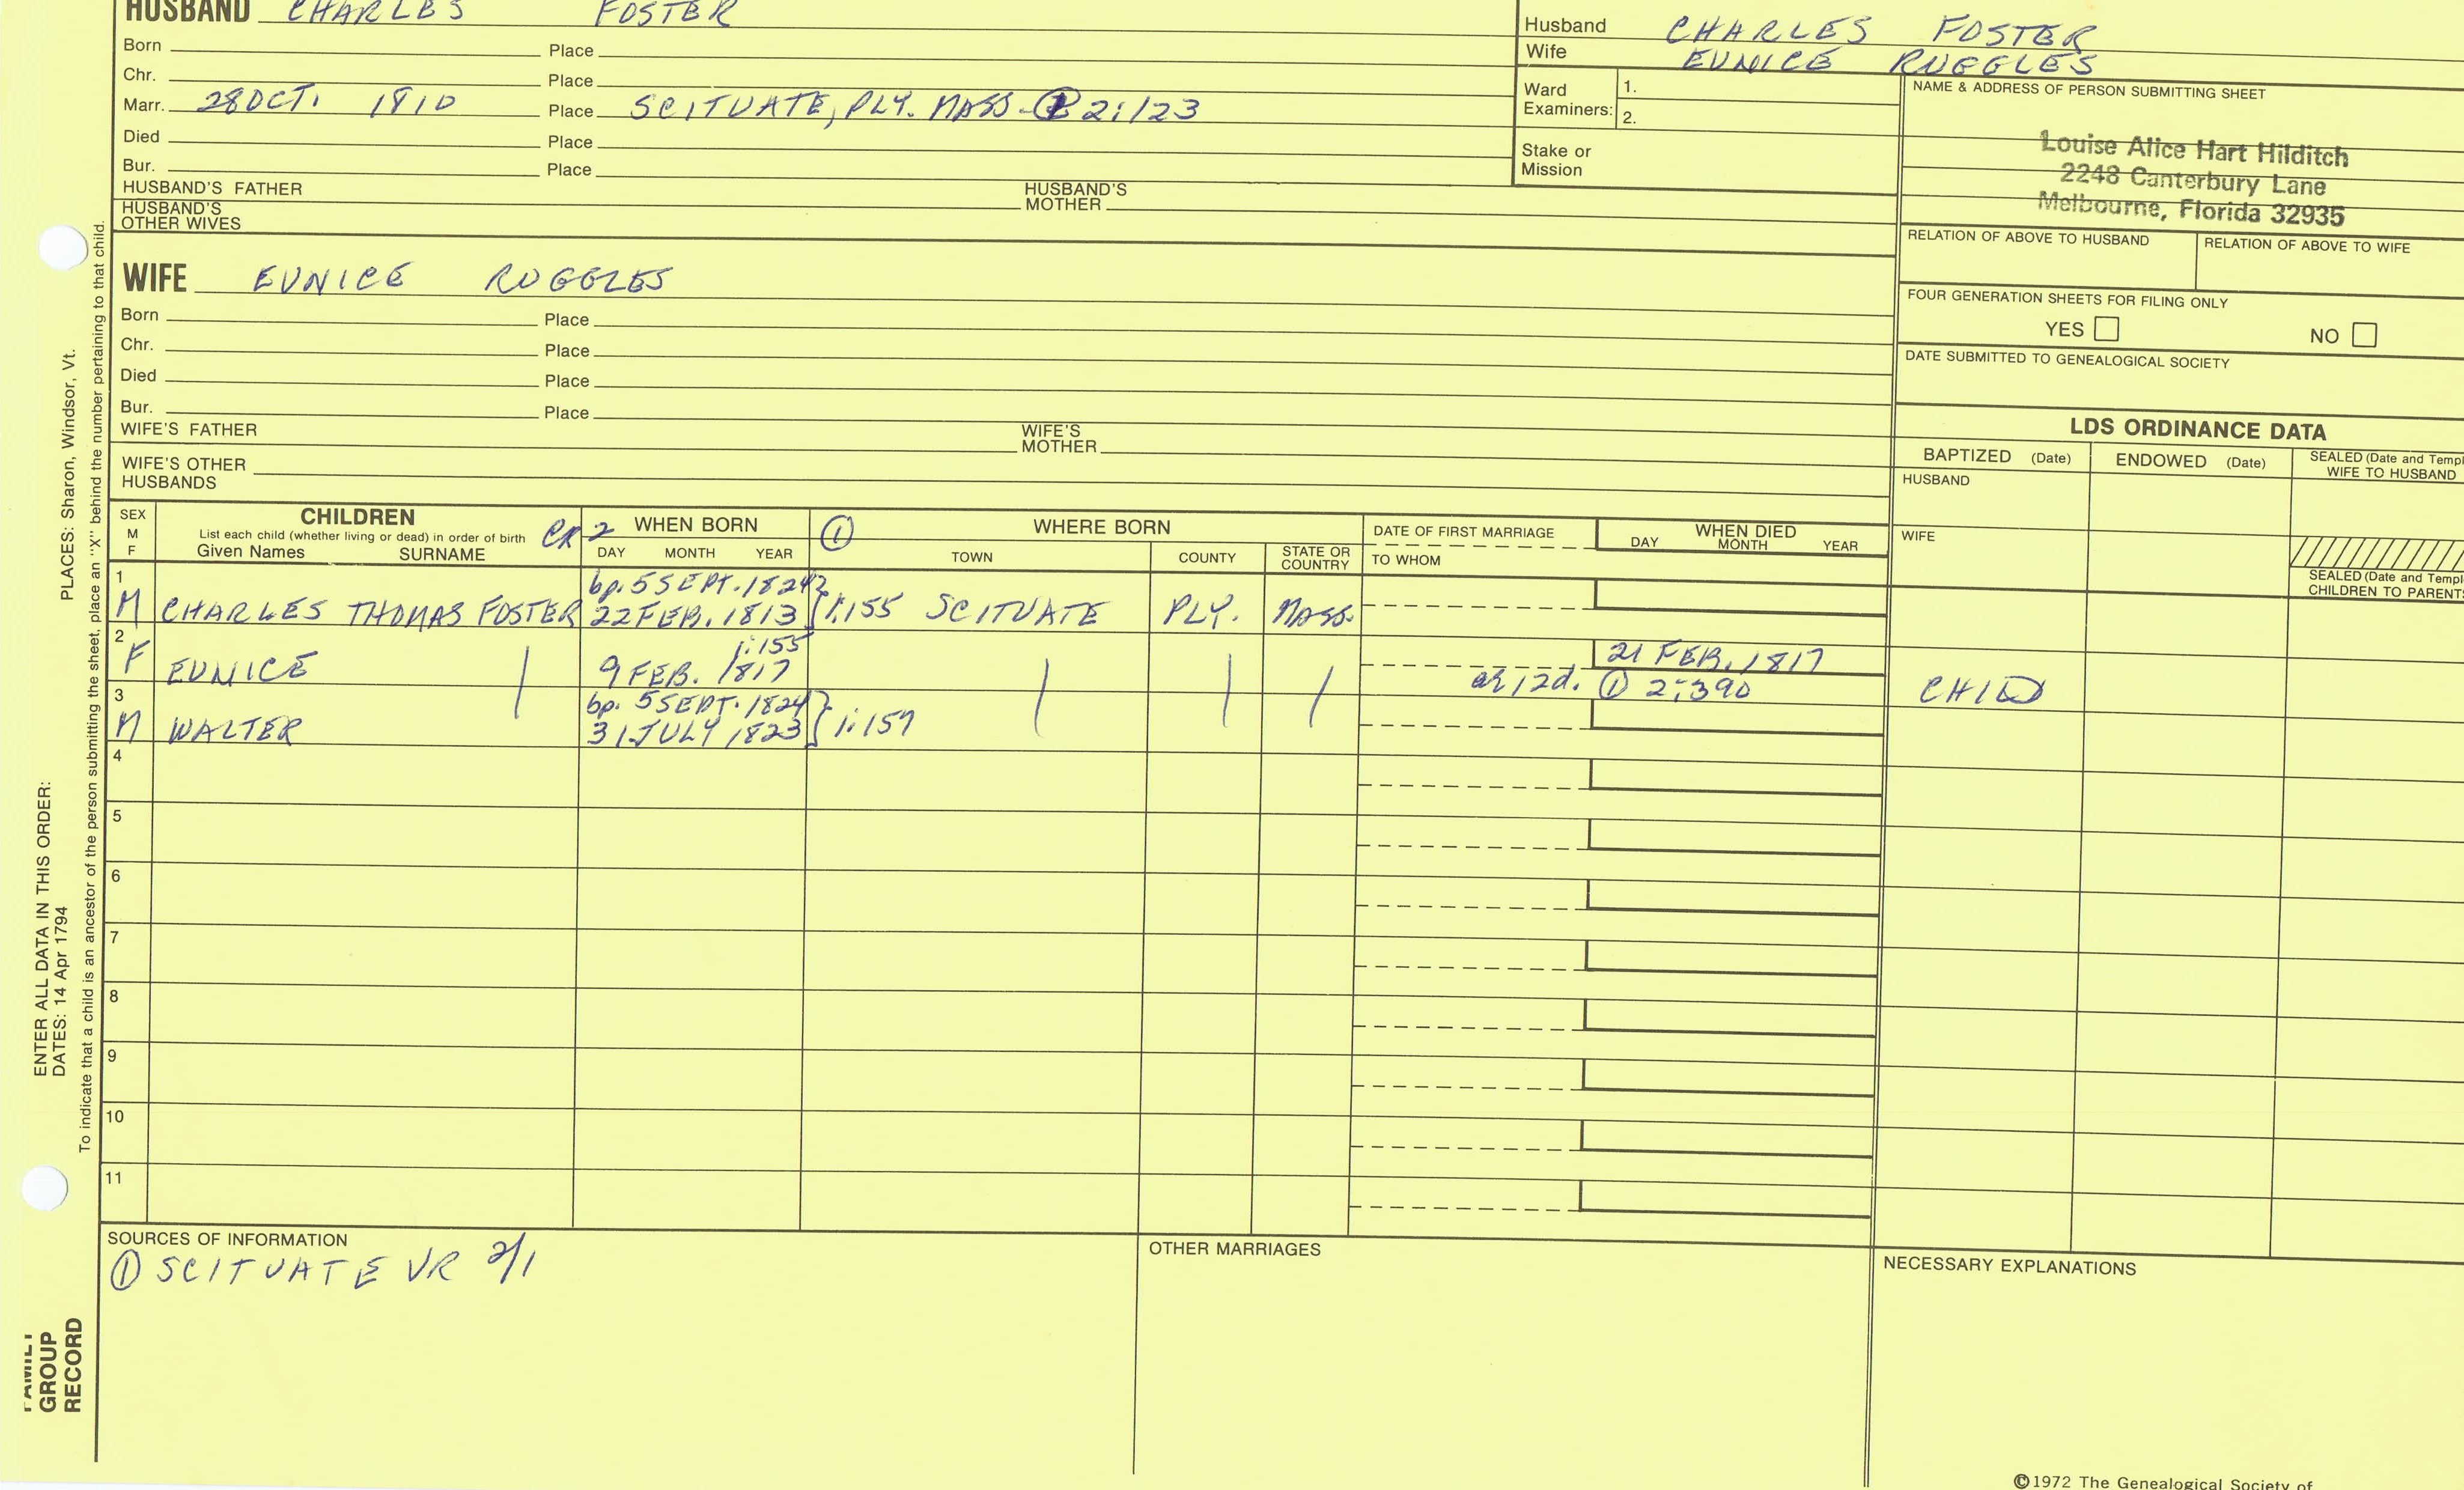 HUSBAND CHARLES FOSTER
Born Place
Chr. Place
Marr. 28 OCT. 1810 Place SCITUATE, PLY. MASS. 2:123
Died Place
Bur. Place
HUSBAND'S FATHER HUSBAND'S MOTHER
HUSBAND'S OTHER WIVES
Husband CHARLES FOSTER
Wife EUNICE RUGGLES
Ward Examiners: 1.
2.
Stake or Mission
NAME & ADDRESS OF PERSON SUBMITTING SHEET
Louise Alice Hart Hilditch
2248 Canterbury Lane
Melbourne, Florida 32935
RELATION OF ABOVE TO HUSBAND RELATION OF ABOVE TO WIFE
FOUR GENERATION SHEETS FOR FILING ONLY
YES NO
DATE SUBMITTED TO GENEALOGICAL SOCIETY
WIFE EUNICE RUGGLES
Born Place
Chr. Place
Died Place
Bur. Place
WIFE'S FATHER WIFE'S MOTHER
WIFE'S OTHER HUSBANDS
LDS ORDINANCE DATA
BAPTIZED (Date) ENDOWED (Date) SEALED (Date and Templ
WIFE TO HUSBAND
HUSBAND
WIFE
SEALED (Date and Templ
CHILDREN TO PARENTS
SEX M F CHILDREN CR 2 WHEN BORN ① WHERE BORN DATE OF FIRST MARRIAGE WHEN DIED
List each child (whether living or dead) in order of birth
Given Names SURNAME DAY MONTH YEAR TOWN COUNTY STATE OR COUNTRY TO WHOM DAY MONTH YEAR
1 bp. 5 SEPT. 1824
M CHARLES THOMAS FOSTER 22 FEB. 1813 } 1:155 SCITUATE PLY. MASS.
2 1:155 21 FEB. 1817
F EUNICE 9 FEB. 1817
ae 12d. ① 2:390 CHILD
3 bp. 5 SEPT. 1824
M WALTER 31 JULY 1823 } 1:157
4
5
6
7
8
9
10
11
SOURCES OF INFORMATION
① SCITUATE VR 2/1
OTHER MARRIAGES
NECESSARY EXPLANATIONS
©1972 The Genealogical Society of
ENTER ALL DATA IN THIS ORDER:
DATES: 14 Apr 1794 PLACES: Sharon, Windsor, Vt.
To indicate that a child is an ancestor of the person submitting the sheet, place an "X" behind the number pertaining to that child.
FAMILY
GROUP
RECORD